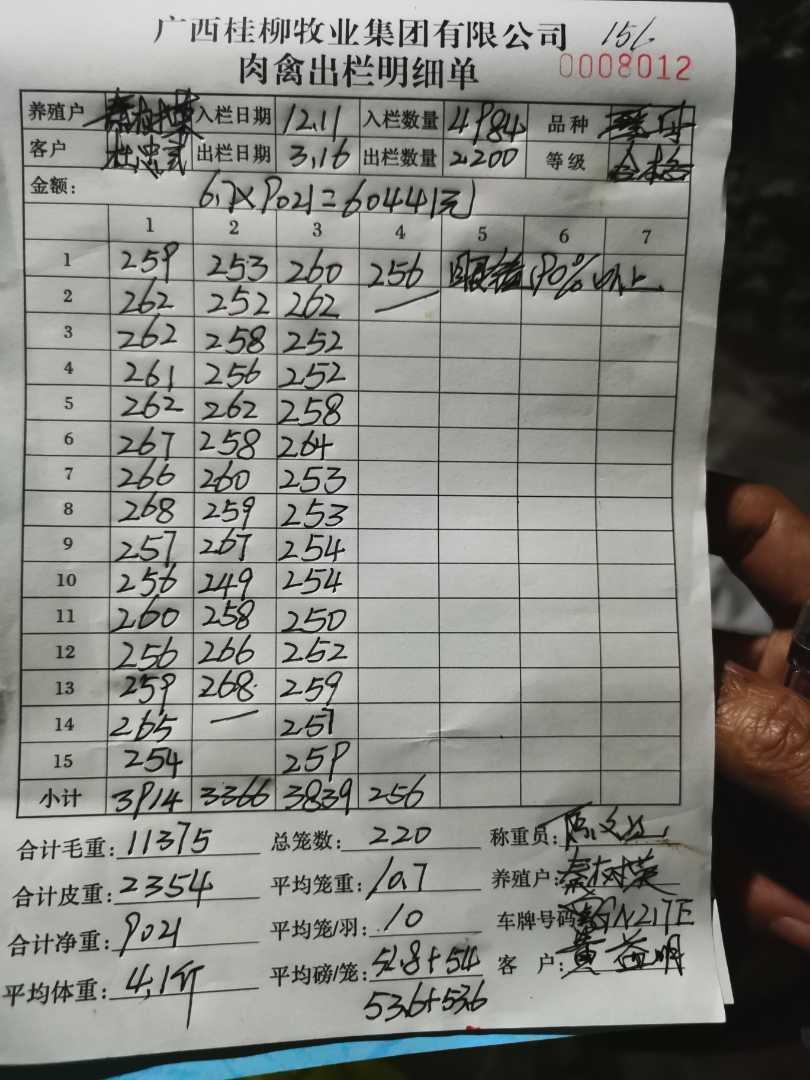 广西桂柳牧业集团有限公司 156
肉禽出栏明细单 0008012
养殖户 秦树荣 入栏日期 12.11 入栏数量 4984 品种
客户 杜忠 出栏日期 3.16 出栏数量 2200 等级 合格
金额: 6.7×9021=60441元
1 2 3 4 5 6 7
1 259 253 260 256 90%以上
2 262 252 262 —
3 262 258 252
4 261 256 252
5 262 262 258
6 267 258 264
7 266 260 253
8 268 259 253
9 257 267 254
10 256 249 254
11 260 258 250
12 256 266 252
13 259 268 259
14 265 — 257
15 254 259
小计 3914 3366 3839 256
合计毛重: 11375 总笼数: 220 称重员:
合计皮重: 2354 平均笼重: 10.7 养殖户: 秦树荣
合计净重: 9021 平均笼/羽: 10 车牌号码 GN217E
平均体重: 4.1斤 平均磅/笼: 52.8+54 客户: 黄益明
53.6+53.6